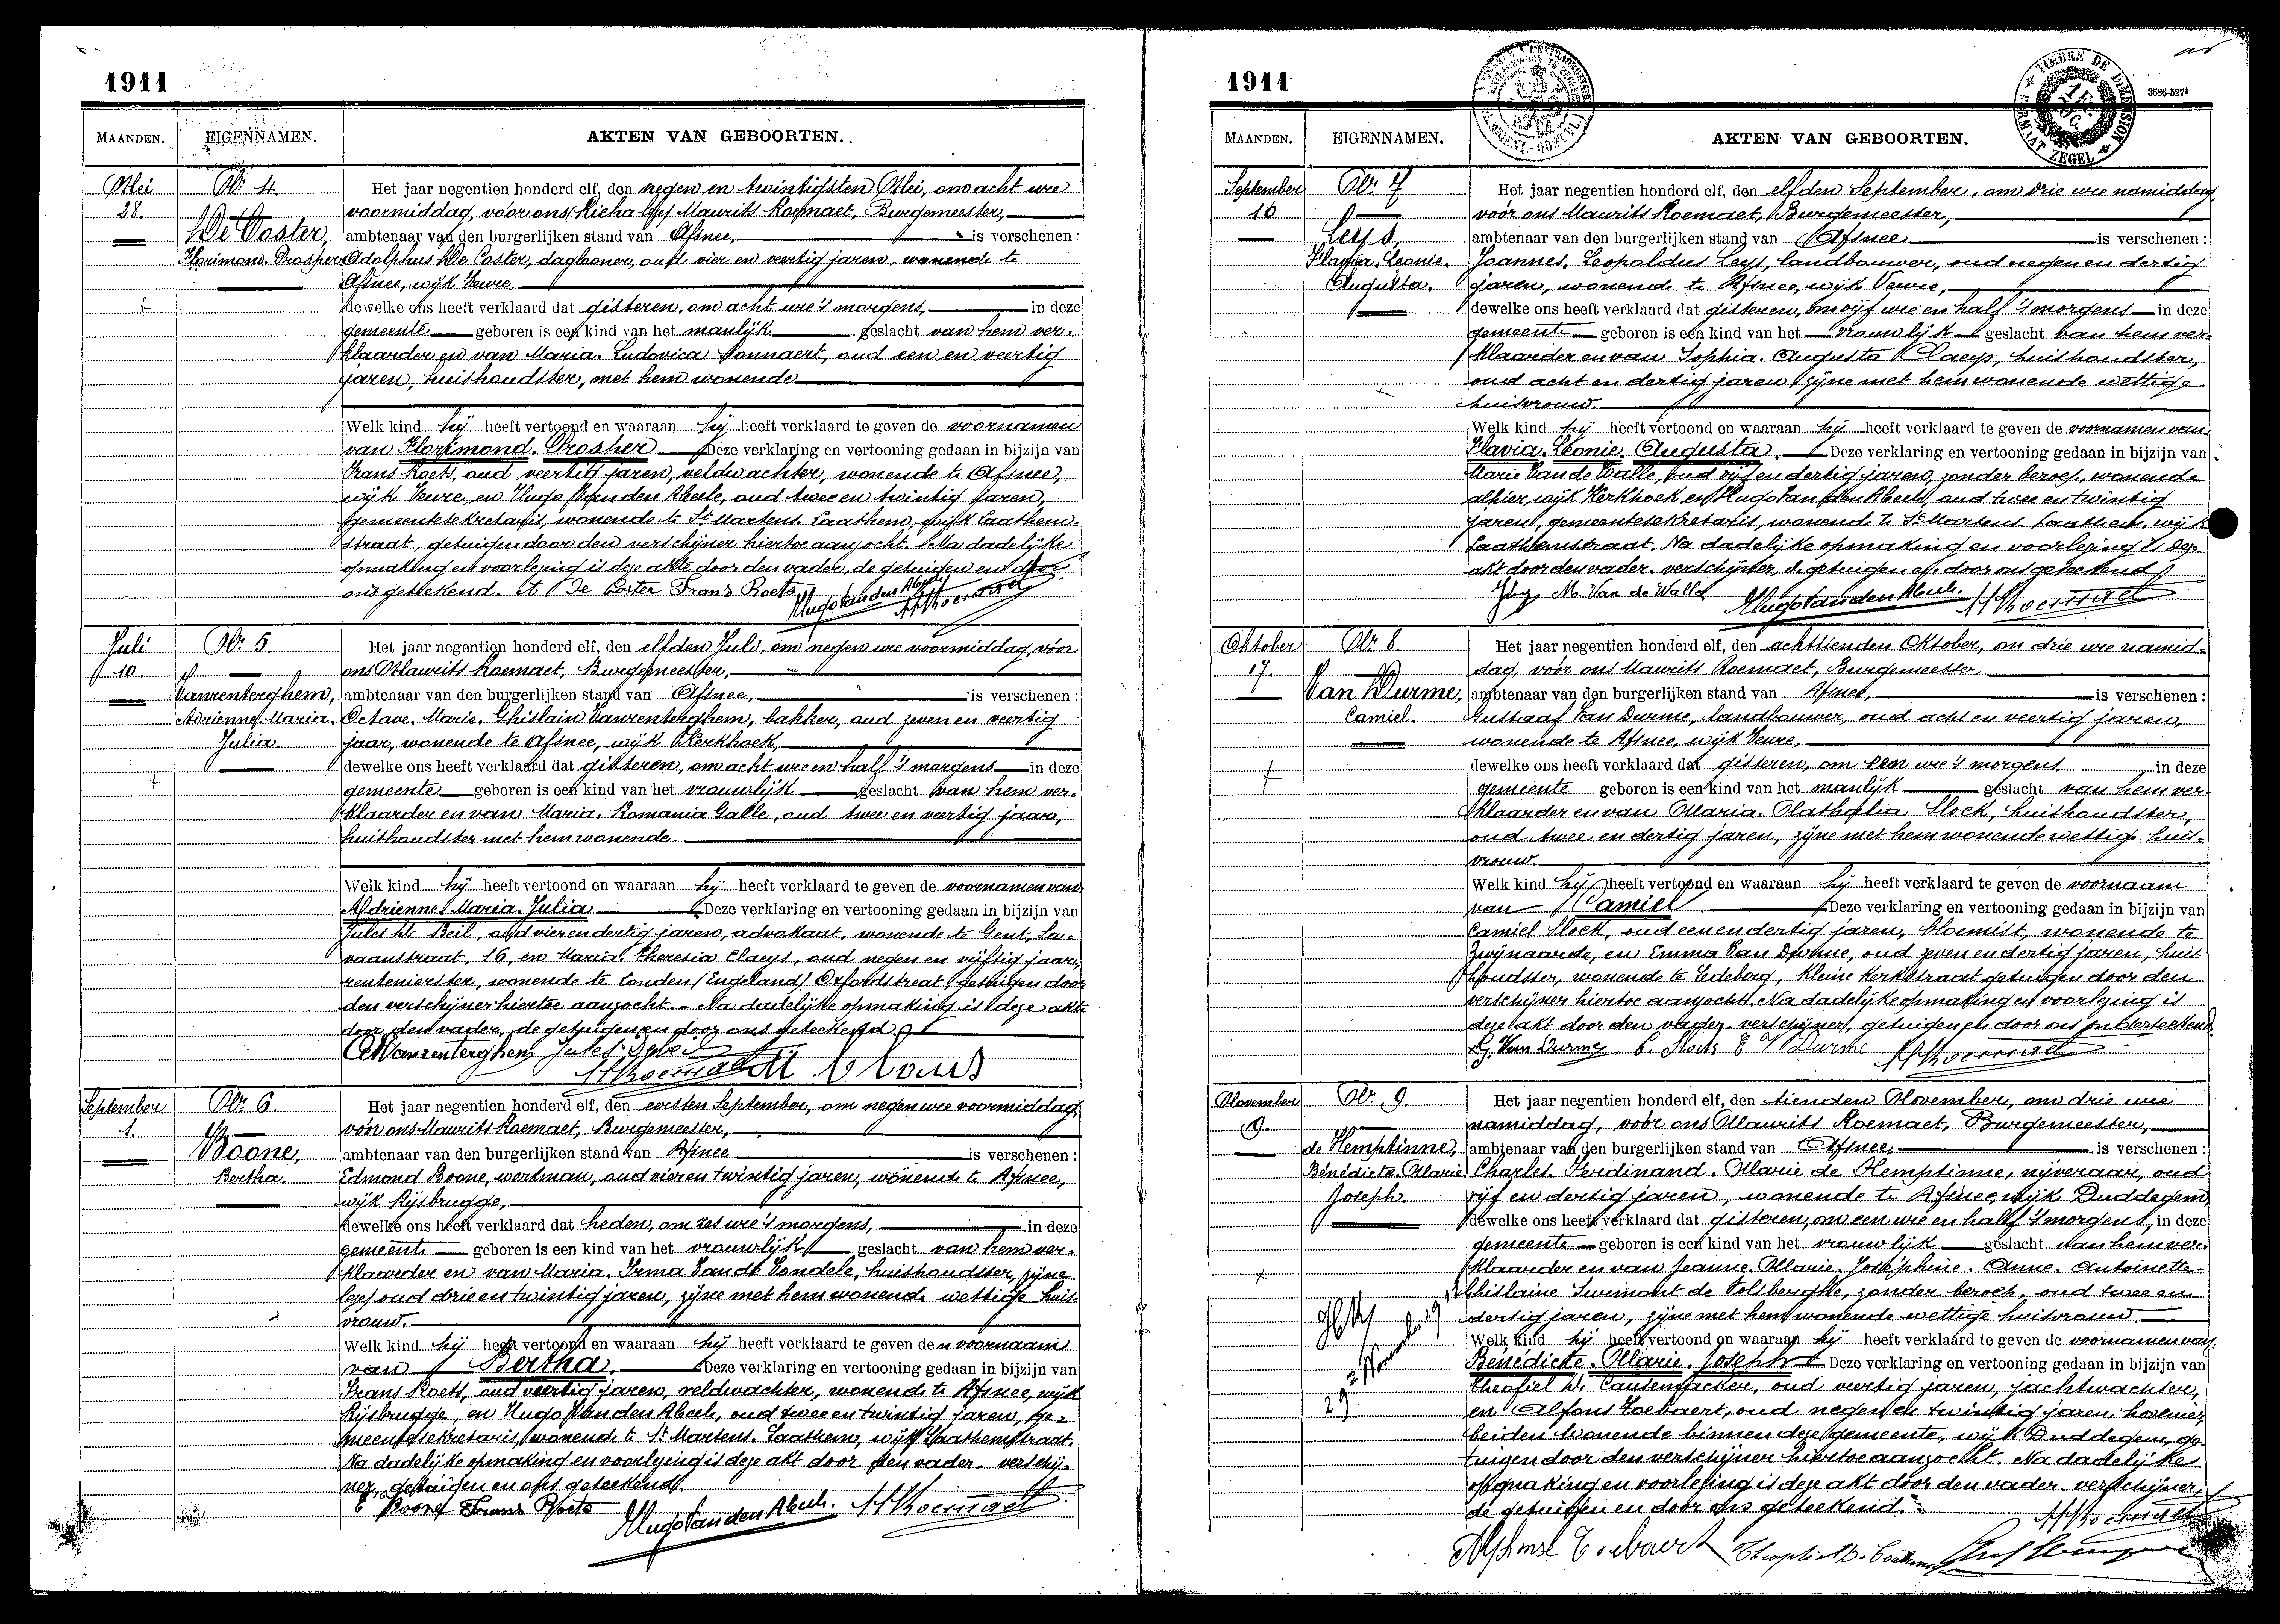 1911
MAANDEN. EIGENNAMEN. AKTEN VAN GEBOORTEN.
Mei
28.
Nr. 4.
De Coster,
Florimond. Prosper
Het jaar negentien honderd elf, den negen en twintigsten Mei, om acht ure
voormiddag, vóór ons Maurits Roemaet, Burgemeester,
ambtenaar van den burgerlijken stand van Afsnee, is verschenen:
Adolphus De Coster, daglooner, oud vier en veertig jaren, wonende te
Afsnee, wijk Veure,
dewelke ons heeft verklaard dat gisteren, om acht ure 's morgens, in deze
gemeente geboren is een kind van het manlijk geslacht van hem ver-
klaarder en van Maria. Ludovica Monnaert, oud een en veertig
jaren, huishoudster, met hem wonende
Welk kind hij heeft vertoond en waaraan hij heeft verklaard te geven de voornamen
van Florimond. Prosper Deze verklaring en vertooning gedaan in bijzijn van
Frans Roets, oud veertig jaren, veldwachter, wonende te Afsnee,
wijk Veure, en Hugo Van den Abeele, oud twee en twintig jaren,
gemeentesekretaris, wonende te St Martens. Laathem, wijk Laathem-
straat, getuigen door den verschijner hiertoe aanzocht. Na dadelijke
opmaking en voorlezing is deze akte door den vader, de getuigen en door
ons geteekend. A De Coster Frans Roets Hugo Van den Abeele
Juli
10
Nr. 5.
Vanrenterghem,
Adrienne. Maria.
Julia
Het jaar negentien honderd elf, den elfden Juli, om negen ure voormiddag, vóór
ons Maurits Roemaet, Burgemeester,
ambtenaar van den burgerlijken stand van Afsnee, is verschenen:
Octave. Marie. Ghislain Vanrenterghem, bakker, oud zeven en veertig
jaar, wonende te Afsnee, wijk Kerkhoek,
dewelke ons heeft verklaard dat gisteren, om acht ure en half 's morgens in deze
gemeente geboren is een kind van het vrouwlijk geslacht van hem ver-
klaarder en van Maria. Romania Galle, oud twee en veertig jaar,
huishoudster met hem wonende.
Welk kind hij heeft vertoond en waaraan hij heeft verklaard te geven de voornamen van
Adrienne. Maria. Julia Deze verklaring en vertooning gedaan in bijzijn van
Jules De Beil, oud vier en dertig jaren, advokaat, wonende te Gent, Sa-
vaanstraat, 16, en Maria. Theresia Claeys, oud negen en vijftig jaar,
rentenierster, wonende te Londen (Engeland) Oxfordstreet, getuigen door
den verschijner hiertoe aanzocht. - Na dadelijke opmaking is deze akte
door den vader, de getuigen en door ons geteekend
September
1.
Nr. 6.
Boone,
Bertha.
Het jaar negentien honderd elf, den eersten September, om negen ure voormiddag,
vóór ons Maurits Roemaet, Burgemeester,
ambtenaar van den burgerlijken stand van Afsnee is verschenen:
Edmond Boone, werkman, oud vier en twintig jaren, wonende te Afsnee,
wijk Rijsbrugge,
dewelke ons heeft verklaard dat heden, om zes ure 's morgens, in deze
gemeente geboren is een kind van het vrouwlijk geslacht van hem ver-
klaarder en van Maria. Irma Van de Vondele, huishoudster, zijne
oud drie en twintig jaren, zijne met hem wonende wettige huis-
vrouw.
Welk kind hij heeft vertoond en waaraan hij heeft verklaard te geven den voornaam
van Bertha. Deze verklaring en vertooning gedaan in bijzijn van
Frans Roets, oud veertig jaren, veldwachter, wonende te Afsnee, wijk
Rijsbrugge, en Hugo Van den Abeele, oud twee en twintig jaren, ge-
meentesekretaris, wonende te St Martens. Laathem, wijk Laathemstraat.
Na dadelijke opmaking en voorlezing is deze akt door den vader - verschij-
ner, getuigen en ons geteekend.
E Boone Frans Roets Hugo Van den Abeele.
1911
3586-527
TIMBRE DE DIMENSION
FORMAAT ZEGEL
MAANDEN. EIGENNAMEN. AKTEN VAN GEBOORTEN.
September
10
Nr. 7
Leys,
Flavia. Leonie.
Augusta.
Het jaar negentien honderd elf, den elfden September, om drie ure namiddag,
vóór ons Maurits Roemaet, Burgemeester,
ambtenaar van den burgerlijken stand van Afsnee is verschenen:
Joannes. Leopoldus Leys, landbouwer, oud negen en dertig
jaren, wonende te Afsnee, wijk Veure,
dewelke ons heeft verklaard dat gisteren, om vijf ure en half 's morgens in deze
gemeente geboren is een kind van het vrouwlijk geslacht van hem ver-
klaarder en van Sophia. Augusta Claeys, huishoudster,
oud acht en dertig jaren, zijne met hem wonende wettige
huisvrouw.
Welk kind hij heeft vertoond en waaraan hij heeft verklaard te geven de voornamen van
Flavia. Leonie. Augusta. Deze verklaring en vertooning gedaan in bijzijn van
Marie Van de Walle, oud vijf en dertig jaren, zonder beroep, wonende
alhier, wijk Kerkhoek en Hugo Van den Abeele, oud twee en twintig
jaren, gemeentesekretaris, wonende te St Martens Laathem, wijk
Laathemstraat. Na dadelijke opmaking en voorlezing is deze
akt door den vader. verschijner, de getuigen en door ons geteekend
M. Van de Walle Hugo Van den Abeele.
Oktober
17.
Nr. 8
Van Durme,
Camiel.
Het jaar negentien honderd elf, den achttienden Oktober, om drie ure namid-
dag, vóór ons Maurits Roemaet, Burgemeester
ambtenaar van den burgerlijken stand van Afsnee, is verschenen:
Gustaaf Van Durme, landbouwer, oud acht en veertig jaren,
wonende te Afsnee, wijk Veure,
dewelke ons heeft verklaard dat gisteren, om een ure 's morgens in deze
gemeente geboren is een kind van het manlijk geslacht van hem ver-
klaarder en van Maria. Nathalia Slock, huishoudster,
oud twee en dertig jaren, zijne met hem wonende wettige huis-
vrouw.
Welk kind hij heeft vertoond en waaraan hij heeft verklaard te geven de voornaam
van Camiel Deze verklaring en vertooning gedaan in bijzijn van
Camiel Slock, oud een en dertig jaren, bloemist, wonende te
Zwijnaarde, en Emma Van Durme, oud zeven en dertig jaren, huis
houdster, wonende te Ledeberg, Kleine Kerkstraat getuigen door den
verschijner hiertoe aanzocht. Na dadelijke opmaking en voorlezing is
deze akt door den vader. verschijner, getuigen en door ons onderteekend.
G. Van Durme C. Slock E V Durme
November
9.
Nr. 9.
de Hemptinne,
Bénédicte. Marie.
Joseph.
Het jaar negentien honderd elf, den tienden November, om drie ure
namiddag, vóór ons Maurits Roemaet, Burgemeester,
ambtenaar van den burgerlijken stand van Afsnee, is verschenen:
Charles. Ferdinand. Marie de Hemptinne, nijveraar, oud
vijf en dertig jaren, wonende te Afsnee, wijk Duddegem,
dewelke ons heeft verklaard dat gisteren, om een ure en half 's morgens, in deze
gemeente geboren is een kind van het vrouwlijk geslacht van hem ver-
klaarder en van Jeanne. Marie. Joséphine. Anne. Antoinette-
Ghislaine Surmont de Volsberghe, zonder beroep, oud twee en
dertig jaren, zijne met hem wonende wettige huisvrouw.
Welk kind hij heeft vertoond en waaraan hij heeft verklaard te geven de voornamen van
Bénédicte. Marie. Joseph Deze verklaring en vertooning gedaan in bijzijn van
Theofiel De Causemacker, oud veertig jaren, jachtwachter,
en Alfons Loebaert, oud negen en twintig jaren, hovenier,
beiden wonende binnen deze gemeente, wijk Duddegem, ge-
tuigen door den verschijner hiertoe aanzocht. Na dadelijke
opmaking en voorlezing is deze akt door den vader. verschijner,
de getuigen en door ons geteekend.